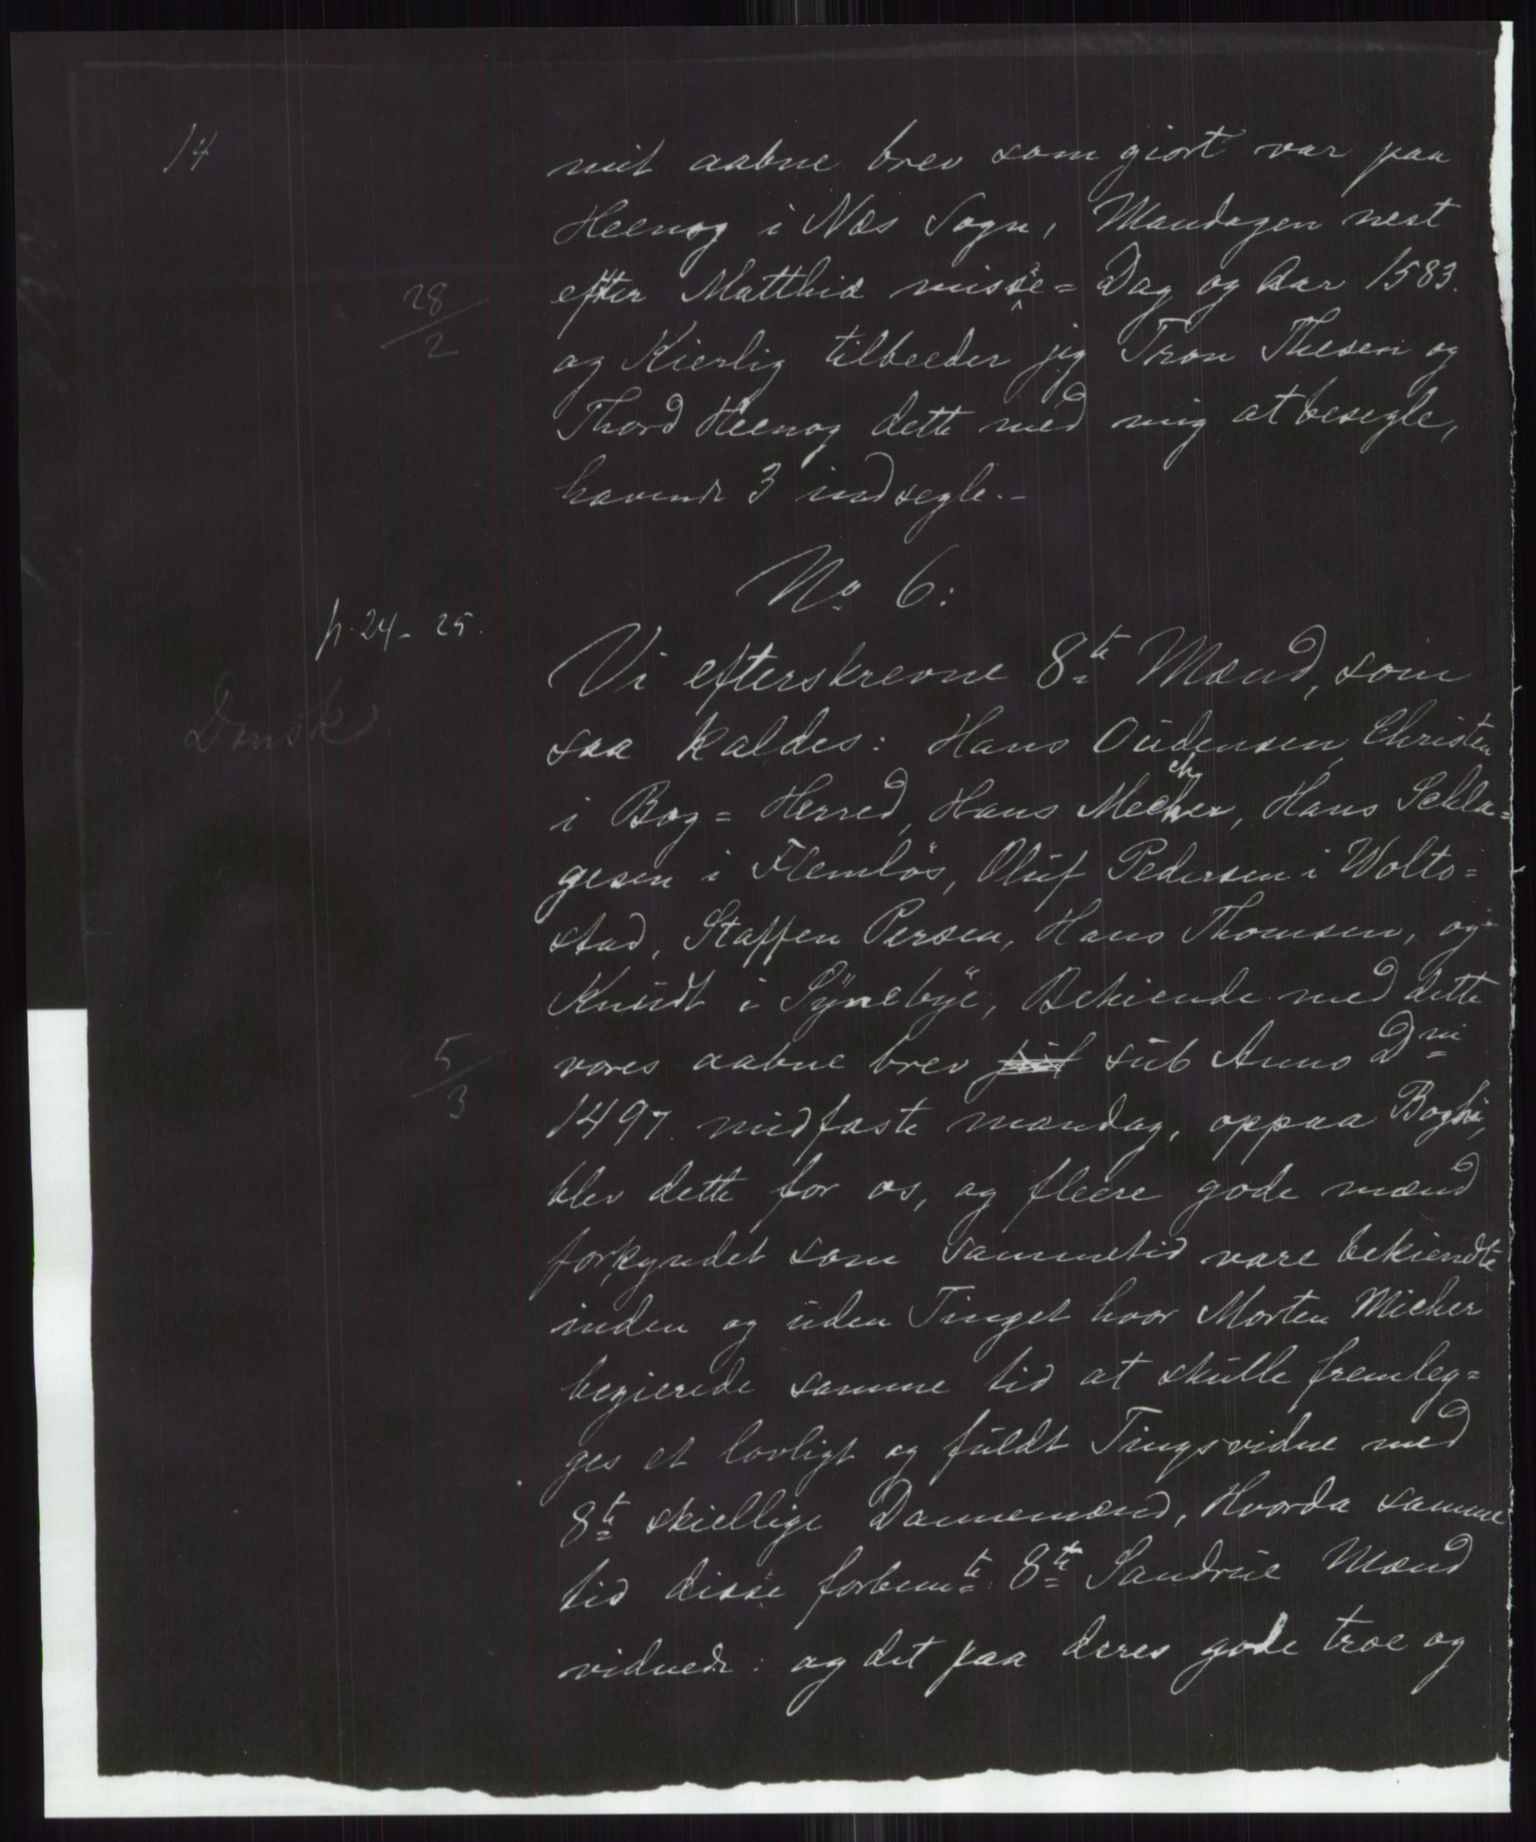 14
mit aabne brev som giort var paa
Heenog i Næs Sogn, Mandagen nest
efter Matthiæ misse=Dag og Aar 1583.
28/2
og Kierlig tilbeeder jeg Tron Thesen og
Thord Heenog dette med mig at besegle,
havende 3 indsegle.-
No 6:
p. 24-25.
Vi efterskrevne 8te Mænd, som
Dansk
saa kaldes: Hans Oüdensen, Christen
i Bog=Herred, Hans Mecher, Hans Schla=
gesen i Flemløs, Olüf Pedersen i Wolto=
stad, Staffen Persen, Hans Thomsen, og
Knüdt i Sÿnebÿe, Bekiende med dette
vores aabne brev süb Anno Dni
5/3
1497. midfaste mandag, oppaa
blev dette for os, og fleere gode mænd
forkyndet som sammetid vare bekiendte
inden og üden Tinget hvor Morten Micher
begierede samme tid at skülle fremleg=
ges et lovligt og füldt Tingsvidne med
8te skiellige Dannemænd, Hvorda samme
tid disse forbemte 8te Sandrüe Mænd
vidnede: og det paa deres gode troe og